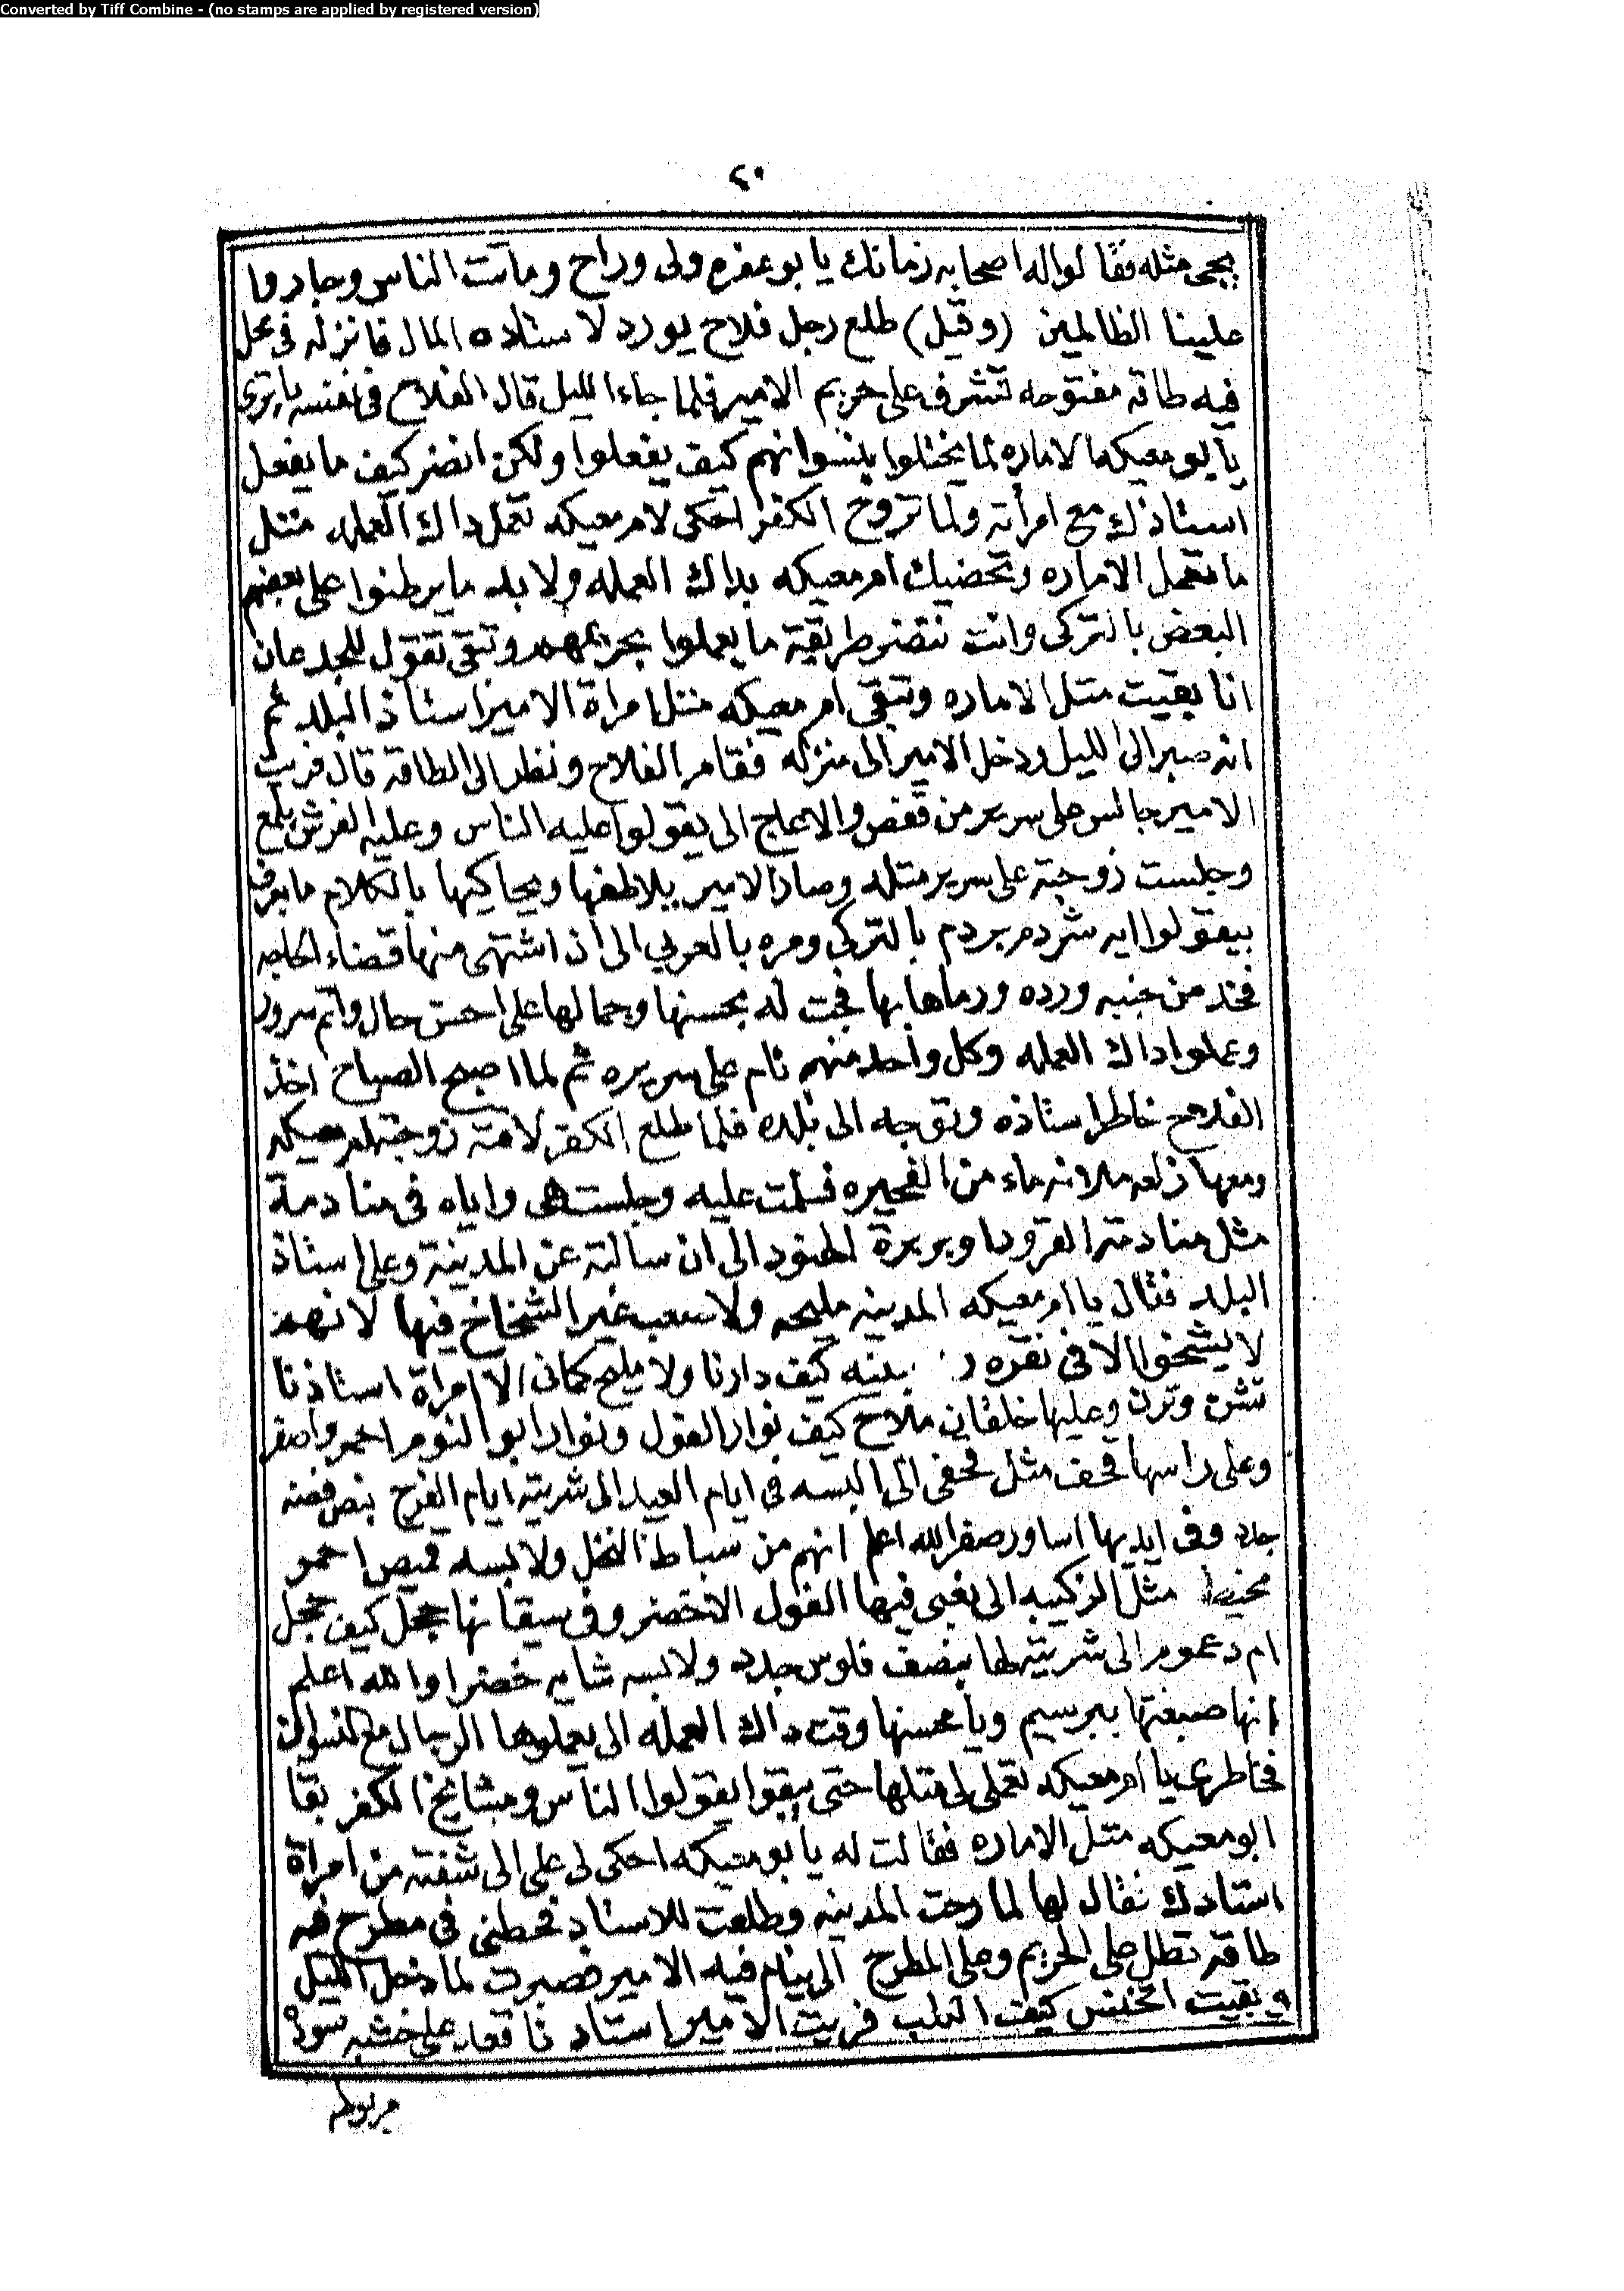 Converted by Tiff Combine - (no stamps are applied by registered version)
٢٠
يجى مثله فقالوا له اصحابه زمانك يا بو عفره ولى وراح وماتت الناس وجاروا
علينا الظالمين (وقيل) طلع رجل فلاح يورد لاستاده المال فانزله فى محل
فيه طاقه مفتوحه تشرف على حريم الامير فلما جاء الليل قال الفلاح فى نفسه يا ترى
يا بو معيكه الاماره لما يختلوا بنسوانهم كيف يفعلوا ولكن انضر كيف ما يفعل
استاذك مع امرأته ولما تروح الكفر احكى لام معيكه تعمل داك العمله مثل
ما تعمل الاماره وتحضيك ام معيكه بداك العمله ولا بد ما يرطنوا على بعضهم
البعض بالتركى وانت تنضر طريقية ما يعملوا بحريمهم وتبقى تقول للجدعان
انا بقيت متل الاماره وتبقى ام معيكه متل امراة الامير استاذ البلد ثم
انه صبر الى الليل ودخل الامير الى منزله فقام الفلاح ونظر الى الطاقه قال فريت
الامير جالس على سرير من قفص والا عاج الى يقولوا عليه الناس وعليه الفرش يلمع
وجلست زوجته على سرير متله وصار الامير يلاطفها ويحاكيها بالكلام ما بعرف
بيقولوا ايه شردم بردم بالتركى ومره بالعربي الى ان اشتهى منها قضاء الحاجه
فخد من جنبه ورده ورماها بها فجت له بحسنها وجمالها على احسن حال واتم سرور
وعملوا داك العمله وكل واحد منهم نام على سريره ثم لما اصبح الصباح اخذ
الفلاح خاطر استاذه وتوجه الى بلده فلما طلع الكفر لاقته زوجته ام معيكه
ومعها زلعه ملانه ماء من الفحيره فسلمت عليه وجلست هى واياه فى منادمة
مثل منادمة القرود او بربرة الهنود الى ان سالته عن المدينة وعلى استاذ
البلد فقال يا ام معيكه المدينه مليحه ولا صعب غير الشخاخ فيها لانهم
لا يشخوا الا فى نقره كيف دارنا ولا مليح كمان الا امراة استاذنا
تشن وترن وعليها خلقان ملاح كيف نوار الفول ونوار ابو النوم احمر واصفر
وعلى راسها قحف مثل قحفى الى البسه فى ايام العيد الى شريته ايام الفرح بنص فضه
جدد وفى ايديها اساور صفر الله اعلم انهم من سباط النخل ولابسه قميص احمر
مخيط مثل الزكيبه الى نعبى فيها الفول الاخضر وفى سيقانها حجل كيف حجل
ام دعموم الى شريتها لها بنصف فلوس جدد ولابسه شايه خضرا والله اعلم
انها صبغتها ببرسيم ويا محسنها وقت داك العمله الى يعملوها الرجال مع النسوان
فخاطرى يا ام معيكه تعملى لى متلها حتى يبقوا يقولوا الناس ومشايخ الكفر بقا
ابو معيكه متل الاماره فقالت له يا بو معيكه احكى لى على الى شفته من امراة
استادك فقال لها لما رحت المدينه وطلعت للاستاد فحطنى فى مطرح فيه
طاقه تطل على الحريم وعلى المطرح الى ينام فيه الامير فصبرت لما دخل الليل
وبقيت اتخنس كيف الكلب فريت الامير استادنا قعد على خشبه سودة
مربوطه